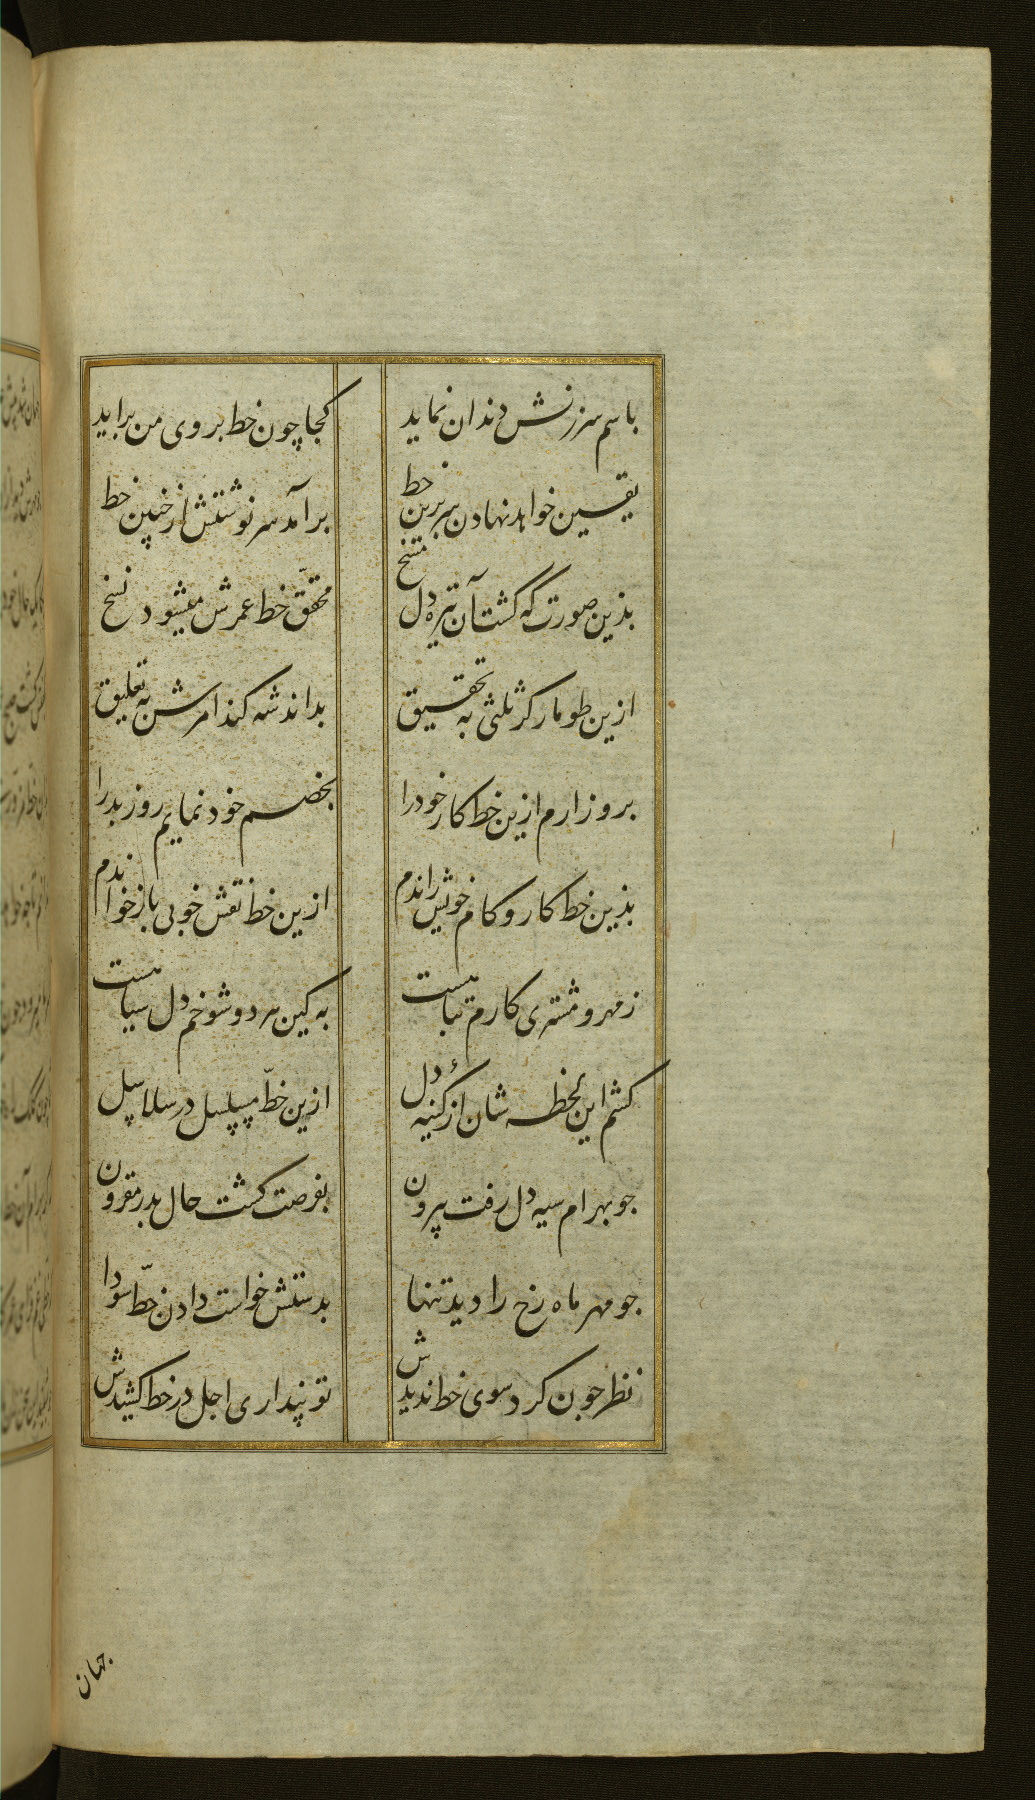 باسم سرزنش دندان نماید کجا چون خط بروی من براید
یقین خواهد نهادن سر برین خط برآمد سرنوشتش از چنین خط
بذین صورت که گشت آن تیره دل مسخ محقّق خط عمرش میشود نسخ
ازین طومار کر ثلثی به تحقیق بداند شه کند امرش به تعلیق
بروز ارم ازین خط کار خود را بخصم خود نمایم روز بد را
بذین خط کار و کام خویش راندم ازین خط نقش خوبی باز خواندم
ز مهر و مشتری کارم تباهست به کین هر دو شوخم دل سیاهست
کشم این لحظه شان از کینهٔ دل ازین خطّ مسلسل در سلاسل
جو بهرام سیه دل رفت بیرون بفرصت کشت حال بدر مقرون
جو مهر ماه رخ را دید تنها بدستش خواست دادن خطّ سودا
نظر جون کرد سوی خط ندیدش تو پنداری اجل در خط کشیدش
جهان